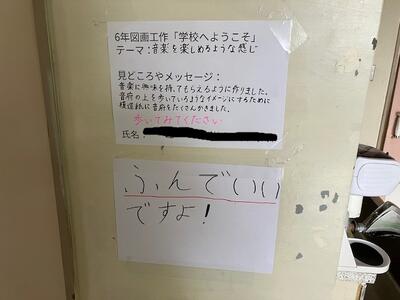 6年図画工作「学校へようこそ」
テーマ:音楽を楽しめるような感じ
見どころやメッセージ:
音楽に興味を持ってもらえるように作りました。
音府の上を歩いているようなイメージにするために
模造紙に音府をたくさんかきました。
歩いてみてください
氏名:
ふんでいい
ですよ!